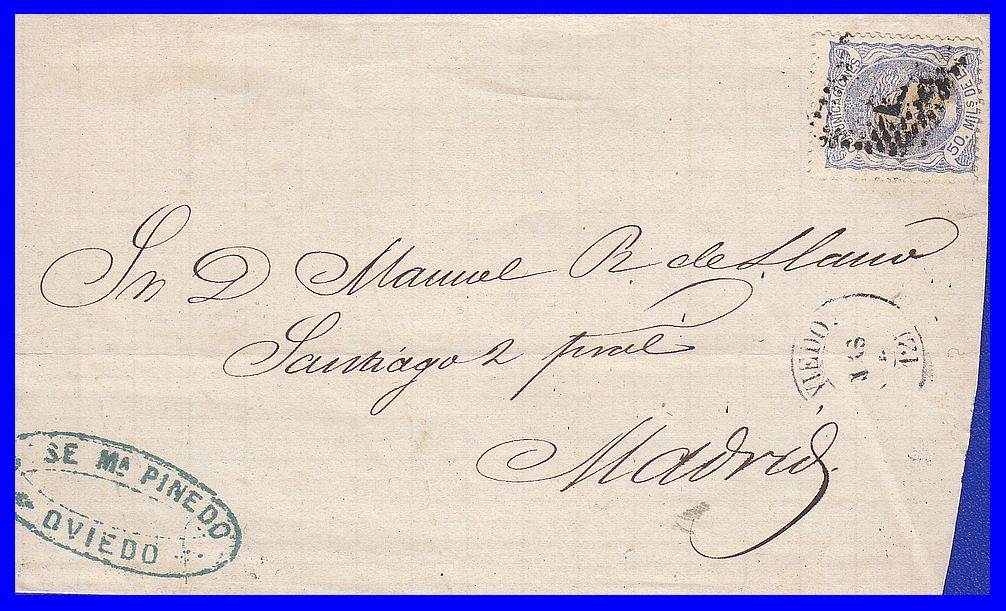 COMUNICACIONES
50. MILS. DE E.
Sr D Manuel R. de Llano
Santiago 2 pral
Madrid
VIEDO
(21)
SE Mª PINEDO
OVIEDO